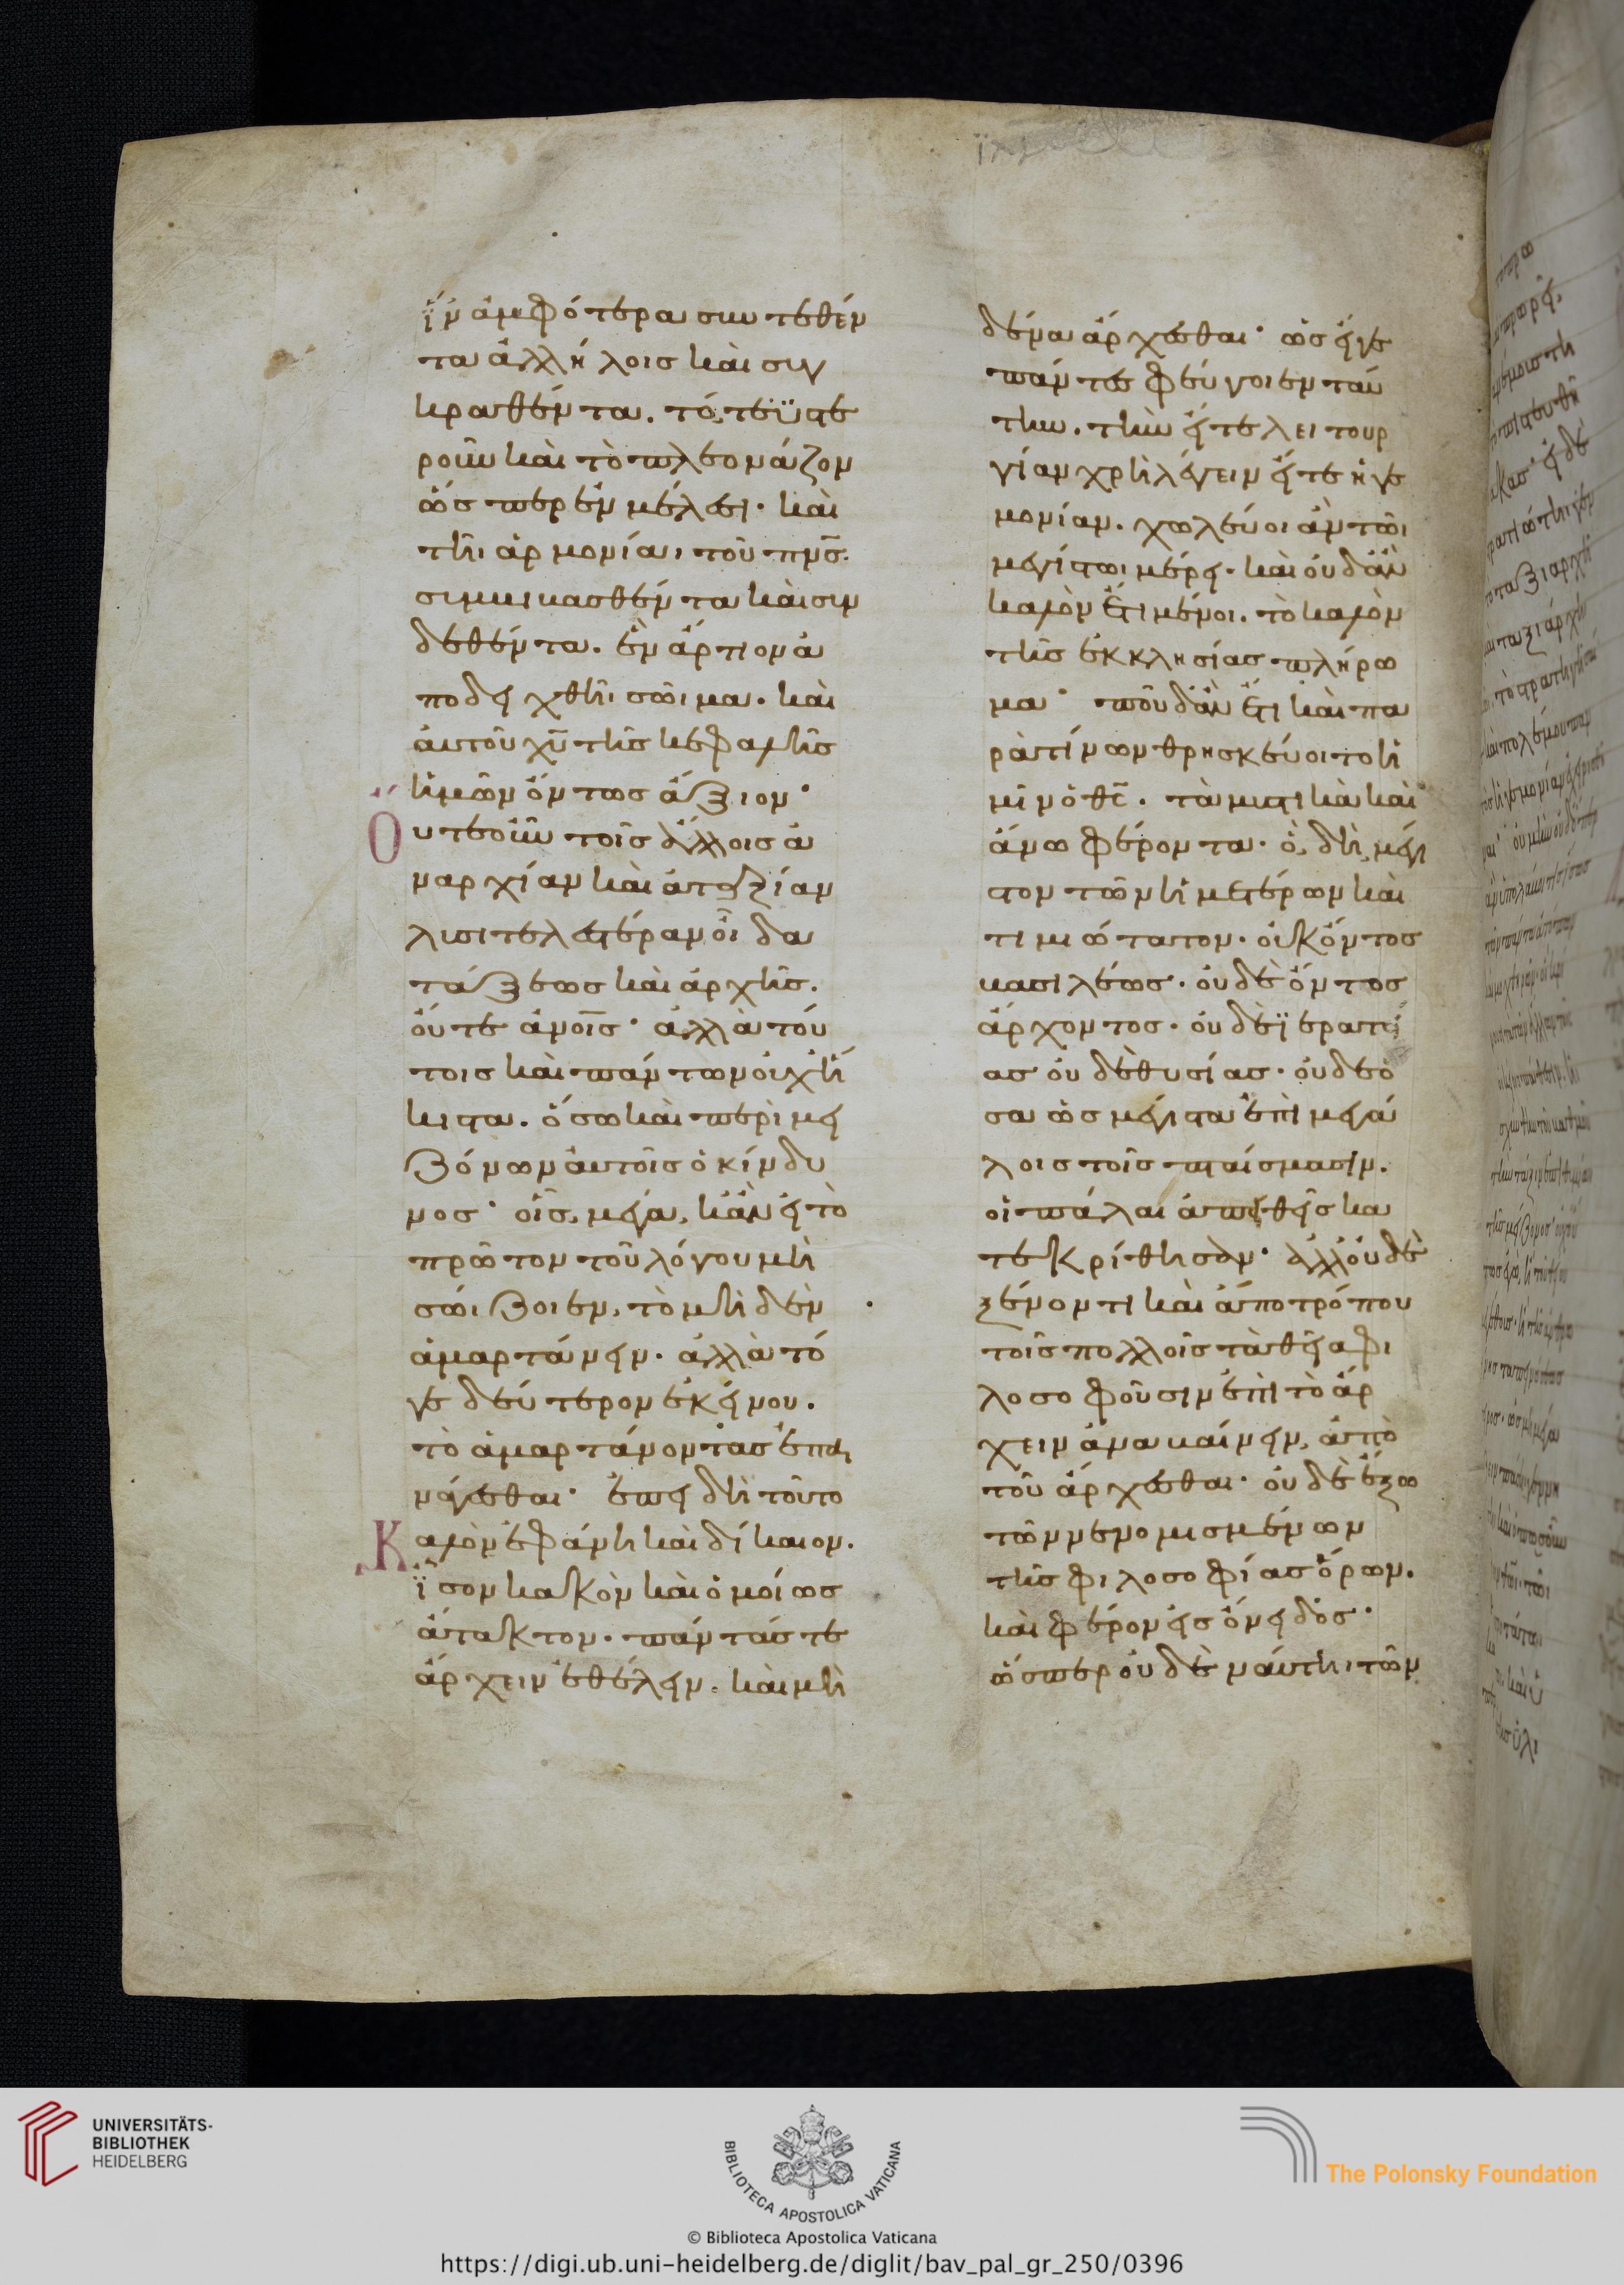 ἵν ἀμφότερα συντεθέν
τα ἀλλήλοις καὶ συγ
κραθέντα. τό, τε ὑστε
ροῦν καὶ τὸ πλεονάζον
ὥσπερ ἐν μέλεσι· καὶ
τῆι ἁρμονίαι τοῦ πνσ̅.
συμβιβασθέντα καὶ συν
δεθέντα. ἓν ἄρτιον ἀ
ποδειχθῆι σῶμα. καὶ
αὐτοῦ χυ̅ τῆς κεφαλῆς
ἡμῶν ὄντως ἄξιον·
Οὔτε οὖν τοῖς ἄλλοις ἀ
ναρχίαν καὶ ἀταξίαν
λυσιτελεστέραν οἶδα
τάξεως καὶ ἀρχῆς.
οὔτε ἀνοις̅· ἀλλὰ τού
τοις καὶ πάντων οὐχ ἥ
κιστα. ὅσω καὶ περὶ μει
ζόνων αὐτοῖς ὁ κίνδυ
νος· οἷς, μέγα, κἂν εἰ τὸ
πρῶτον τοῦ λόγου μὴ
σώιζοιεν, τὸ μὴ δὲν
ἁμαρτάνειν. ἀλλὰ τό
γε δεύτερον ἐκείνου.
τὸ ἁμαρτάνοντας ἐπα
νάγεσθαι· ἐπεὶ δὴ τοῦτο
Καλὸν ἐφάνη καὶ δίκαιον.
ἴσον κακὸν καὶ ὁμοίως
ἄτακτον. πάντάς τε
ἄρχειν ἐθέλειν. καὶ μὴ
δένα ἄρχεσθαι· ὡς εἴγε
πάντες φεύγοιεν ταύ
την. τὴν εἴτε λειτουρ
γίαν χρὴ λέγειν εἴτε ἡγε
μονίαν. χωλεύοι ἂν τῶι
μεγίστωι μέρει. καὶ οὐδ ἂν
καλὸν ἔτι μένοι. τὸ καλὸν
τῆς ἐκκλησίας πλήρω
μα· ποῦ δ ἂν ἔτι καὶ πα
ρὰ τίνων θρησκεύοιτο ἡ
μῖν ὁ θσ̅. τὰ μυστικὰ καὶ
ἄνω φέροντα. ὃ, δὴ, μέγι
στον τῶν ἡμετέρων καὶ
τιμιώτατον. οὐκ ὄντος
βασιλέως. οὐδὲ ὄντος
ἄρχοντος. οὐδὲ ϊερατεί
ας οὐδὲ θυσίας. οὐδὲ ὅ
σα ὡς μέγιστα ἐπὶ μεγά
λοις τοῖς πταίσμασιν.
οἱ πάλαι ἀπειθεῖς κα
τεκρίθησαν· ἀλλ οὐδὲ
ξένον τι καὶ ἀποτρόπου
τοῖς πολλοῖς τὰ θεῖα φι
λοσοφοῦσιν ἐπὶ τὸ ἄρ
χειν ἀναβαίνειν, ἀπὸ
τοῦ ἄρχεσθαι. οὐδὲ ἔξω
τῶν νενομισμένων
τῆς φιλοσοφίας ὅρων.
καὶ φέρον εἰς ὄνειδος·
ὥσπερ οὐδὲ ναύτηι τῶν
UNIVERSITÄTS-
BIBLIOTHEK
HEIDELBERG
BIBLIOTECA APOSTOLICA VATICANA
© Biblioteca Apostolica Vaticana
The Polonsky Foundation
https://digi.ub.uni-heidelberg.de/diglit/bav_pal_gr_250/0396